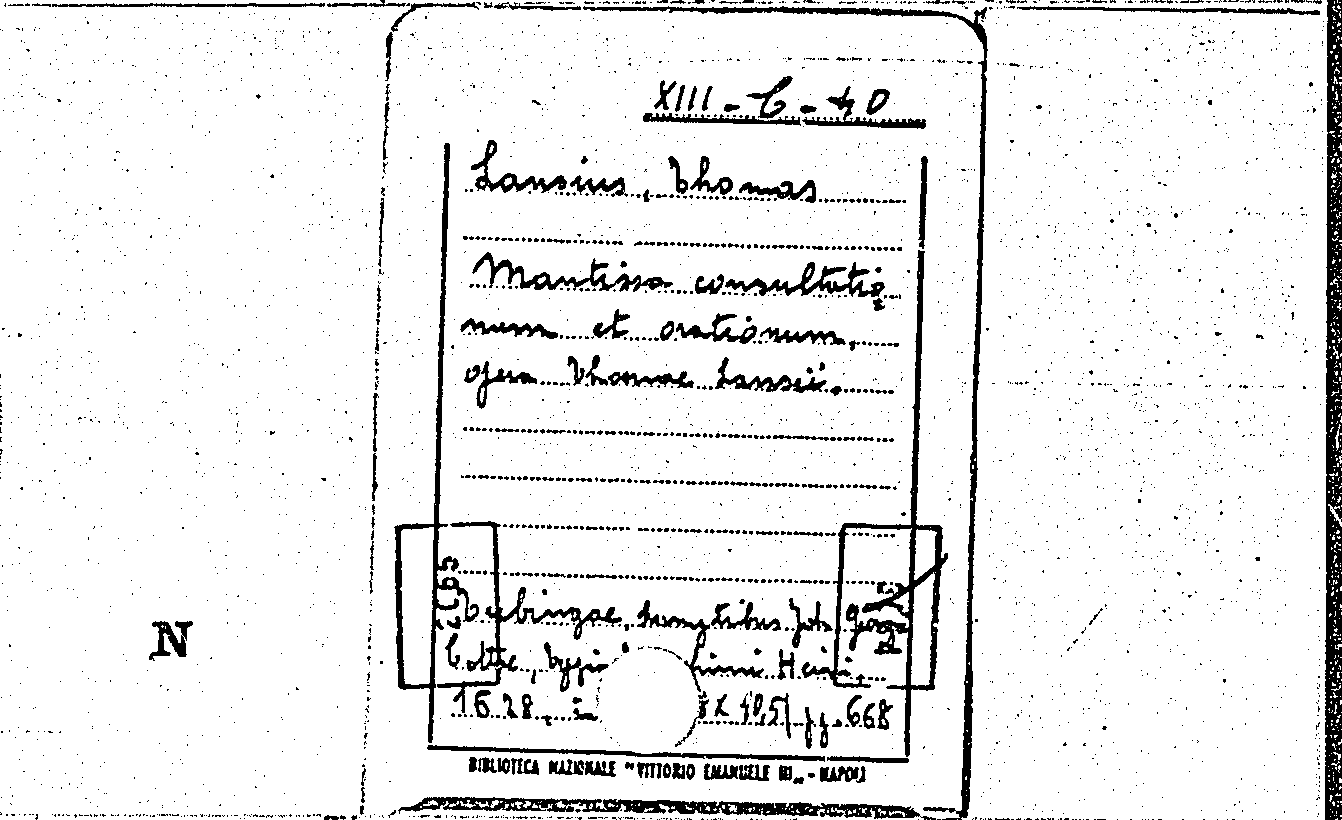 XIII-C-40
Lansius, Thomas
Mantissa consultatio=
num et orationum,
opera Thomae Lansii.
Tubingae, sumptibus Joh. Georgi
Cottae,
N
1628, in X 10,5) pp. 668
BIBLIOTECA NAZIONALE "VITTORIO EMANUELE III„ - NAPOLI